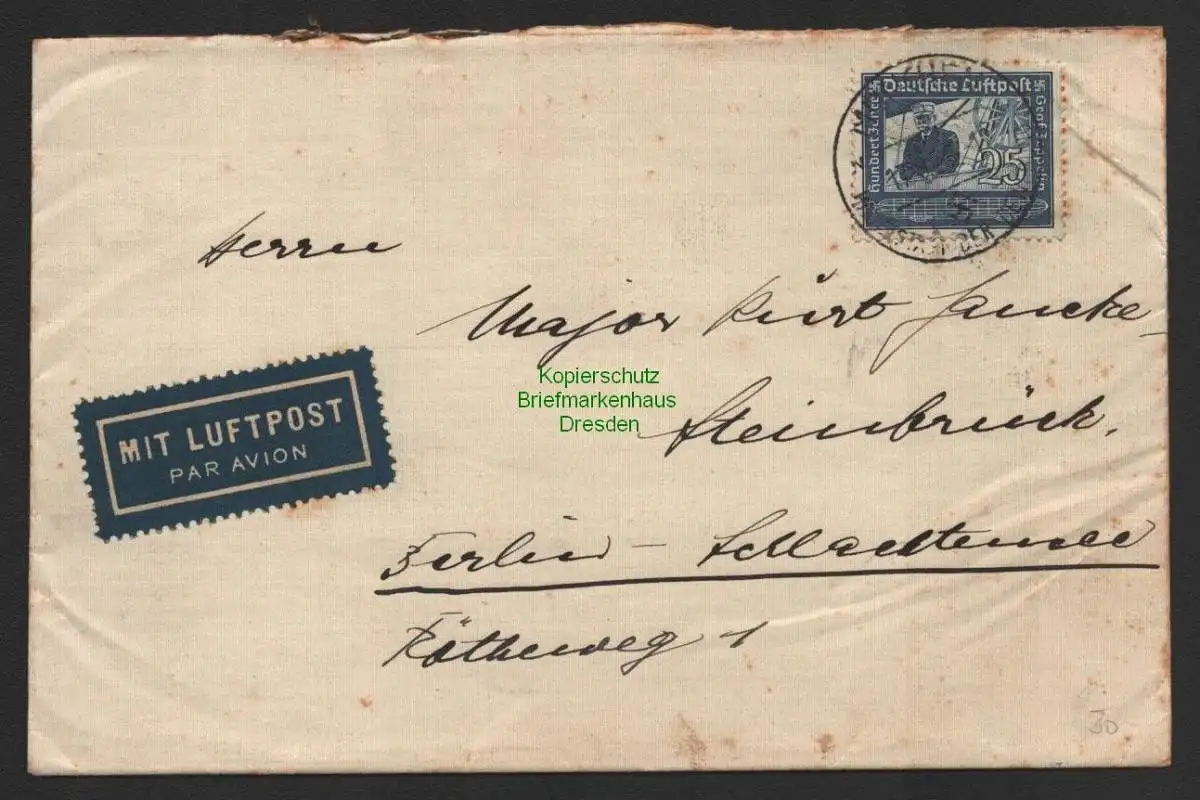 Deutsche Luftpost
Hundert Jahre
Graf Zeppelin
25
Herrn
Major Kurt Jancke-
Steinbrück,
MIT LUFTPOST
PAR AVION
Kopierschutz
Briefmarkenhaus
Dresden
Berlin – Schlachtensee
1
30